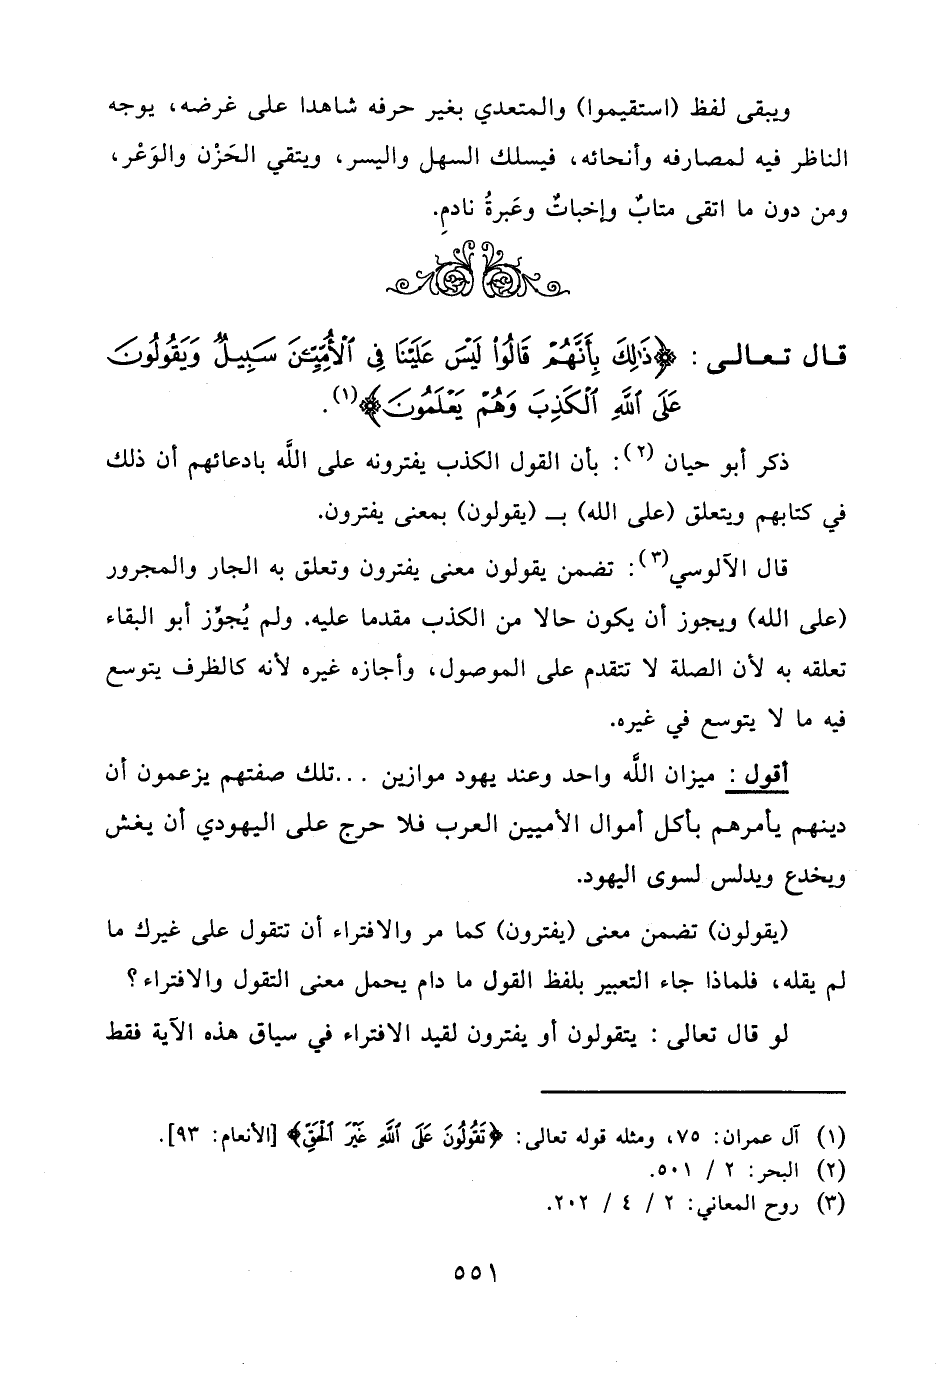 ويبقى لفظ (استقيموا) والمتعدي بغير حرفه شاهدا على غرضه، يوجه
الناظر فيه لمصارفه وأنحائه، فيسلك السهل واليسر، ويتقي الحَزْن والوَعْر،
ومن دون ما اتقى متابٌ وإخباتٌ وعَبرةُ نادمِ.
قال تعالى : ﴿ذَٰلِكَ بِأَنَّهُمْ قَالُوا۟ لَيْسَ عَلَيْنَا فِى ٱلْأُمِّيِّۦنَ سَبِيلٌ وَيَقُولُونَ
عَلَى ٱللَّهِ ٱلْكَذِبَ وَهُمْ يَعْلَمُونَ﴾(١).
ذكر أبو حيان (٢): بأن القول الكذب يفترونه على اللَّه بادعائهم أن ذلك
في كتابهم ويتعلق (على الله) بـ (يقولون) بمعنى يفترون.
قال الآلوسي(٣): تضمن يقولون معنى يفترون وتعلق به الجار والمجرور
(على الله) ويجوز أن يكون حالا من الكذب مقدما عليه. ولم يُجوِّز أبو البقاء
تعلقه به لأن الصلة لا تتقدم على الموصول، وأجازه غيره لأنه كالظرف يتوسع
فيه ما لا يتوسع في غيره.
أقول : ميزان اللَّه واحد وعند يهود موازين ...تلك صفتهم يزعمون أن
دينهم يأمرهم بأكل أموال الأميين العرب فلا حرج على اليهودي أن يغش
ويخدع ويدلس لسوى اليهود.
(يقولون) تضمن معنى (يفترون) كما مر والافتراء أن تتقول على غيرك ما
لم يقله، فلماذا جاء التعبير بلفظ القول ما دام يحمل معنى التقول والافتراء؟
لو قال تعالى : يتقولون أو يفترون لقيد الافتراء في سياق هذه الآية فقط
(١) آل عمران: ٧٥، ومثله قوله تعالى: ﴿تَقُولُونَ عَلَى ٱللَّهِ غَيْرَ ٱلْحَقِّ﴾ [الأنعام: ٩٣].
(٢) البحر: ٢ / ٥٠١.
(٣) روح المعاني: ٢ / ٤ / ٢٠٢.
٥٥١